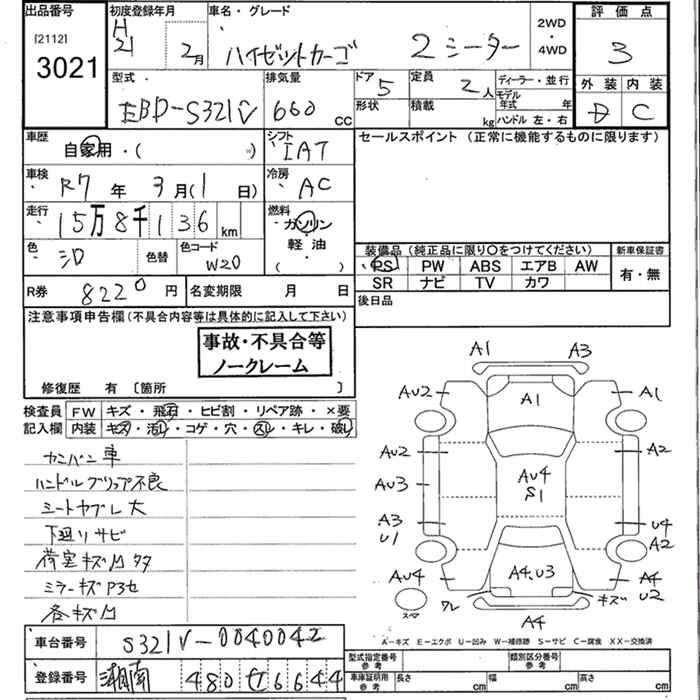 出品番号 初度登録年月 車名・グレード 2WD・4WD 評価点
[2112] 3021 H21 2月 ハイゼットカーゴ 2シーター 3
型式 排気量 ドア 定員 ディーラー・並行 外装 内装
EBD-S321V 660 CC 5 2人 モデル年式 年 D C
形状 積載 kg ハンドル 左・右
車歴 シフト セールスポイント (正常に機能するものに限ります)
自家用・( ) IAT
車検 冷房
R7年 3月(1日) AC
走行 燃料
15万8千136 km ガソリン
軽油
( )
色 色替 色コード 装備品(純正品に限り○をつけてください) 新車保証書
シロ W20 PS PW ABS エアB AW 有・無
SR ナビ TV カワ
R券 8220円 名変期限 月 日 後日品
注意事項申告欄(不具合内容等は具体的に記入して下さい)
事故・不具合等
ノークレーム
修復歴 有 [箇所 ]
検査員 FW キズ・飛石・ヒビ割・リペア跡・×要
記入欄 内装 キズ・汚レ・コゲ・穴・スレ・キレ・破レ
カンバン車
ハンドルグリップ不良
シートヤブレ大
下廻りサビ
荷室キズ凹タタ
ミラーキズ
各キズ凹
車台番号 S321V-0040042
登録番号 湘南 480 セ 6644
A1 A3
AU2 A1 A1
AU2 A2
AU3 AU4
S1
A3
U1 U4
A2
AU4 A4.U3 A4
U2
スペア ワレ キズ
A4
A-キズ E-エクボ U-凹み W-補修跡 S-サビ C-腐食 XX-交換済
型式指定番号 参考 類別区分番号 参考
車庫証明用 参考 長さ cm 幅 cm 高さ cm